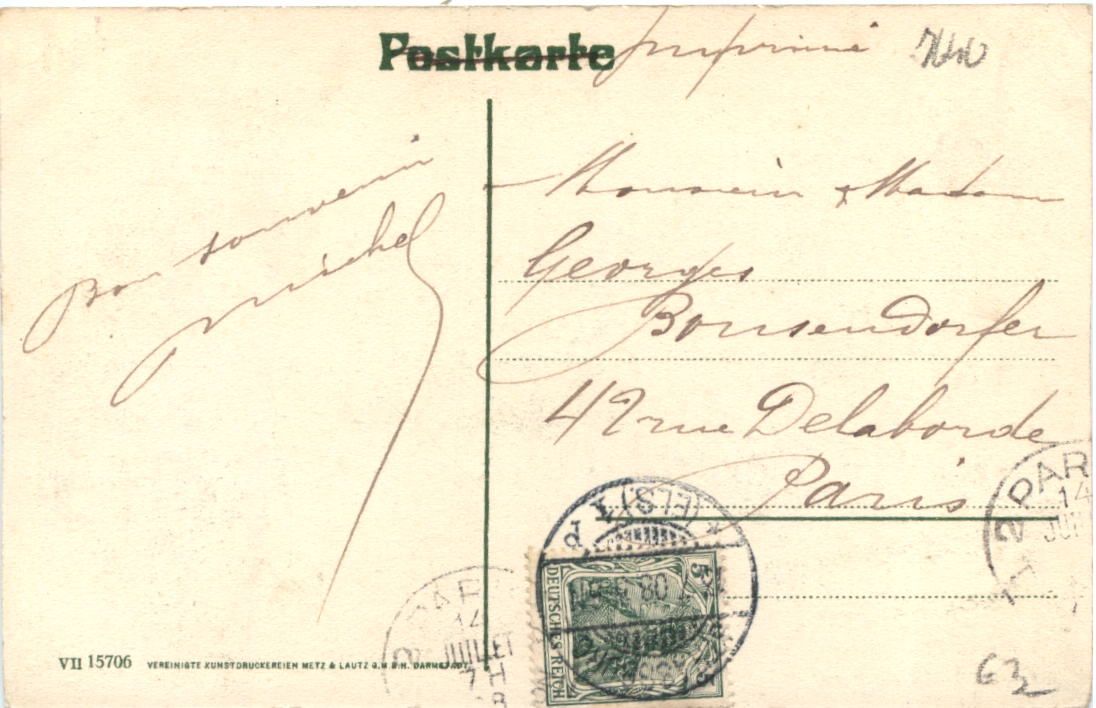 Postkarte Imprimé
Bon souvenir
Michel
Monsieur & Madame
Georges
Bonsendorfer
42 rue Delaborde
Paris
PAR
14
2 PAR
14
JUILLET
7H
DEUTSCHES REICH
5
5
(ELS)
63
VII 15706 VEREINIGTE KUNSTDRUCKEREIEN METZ & LAUTZ G.M.B.H. DARMSTADT.